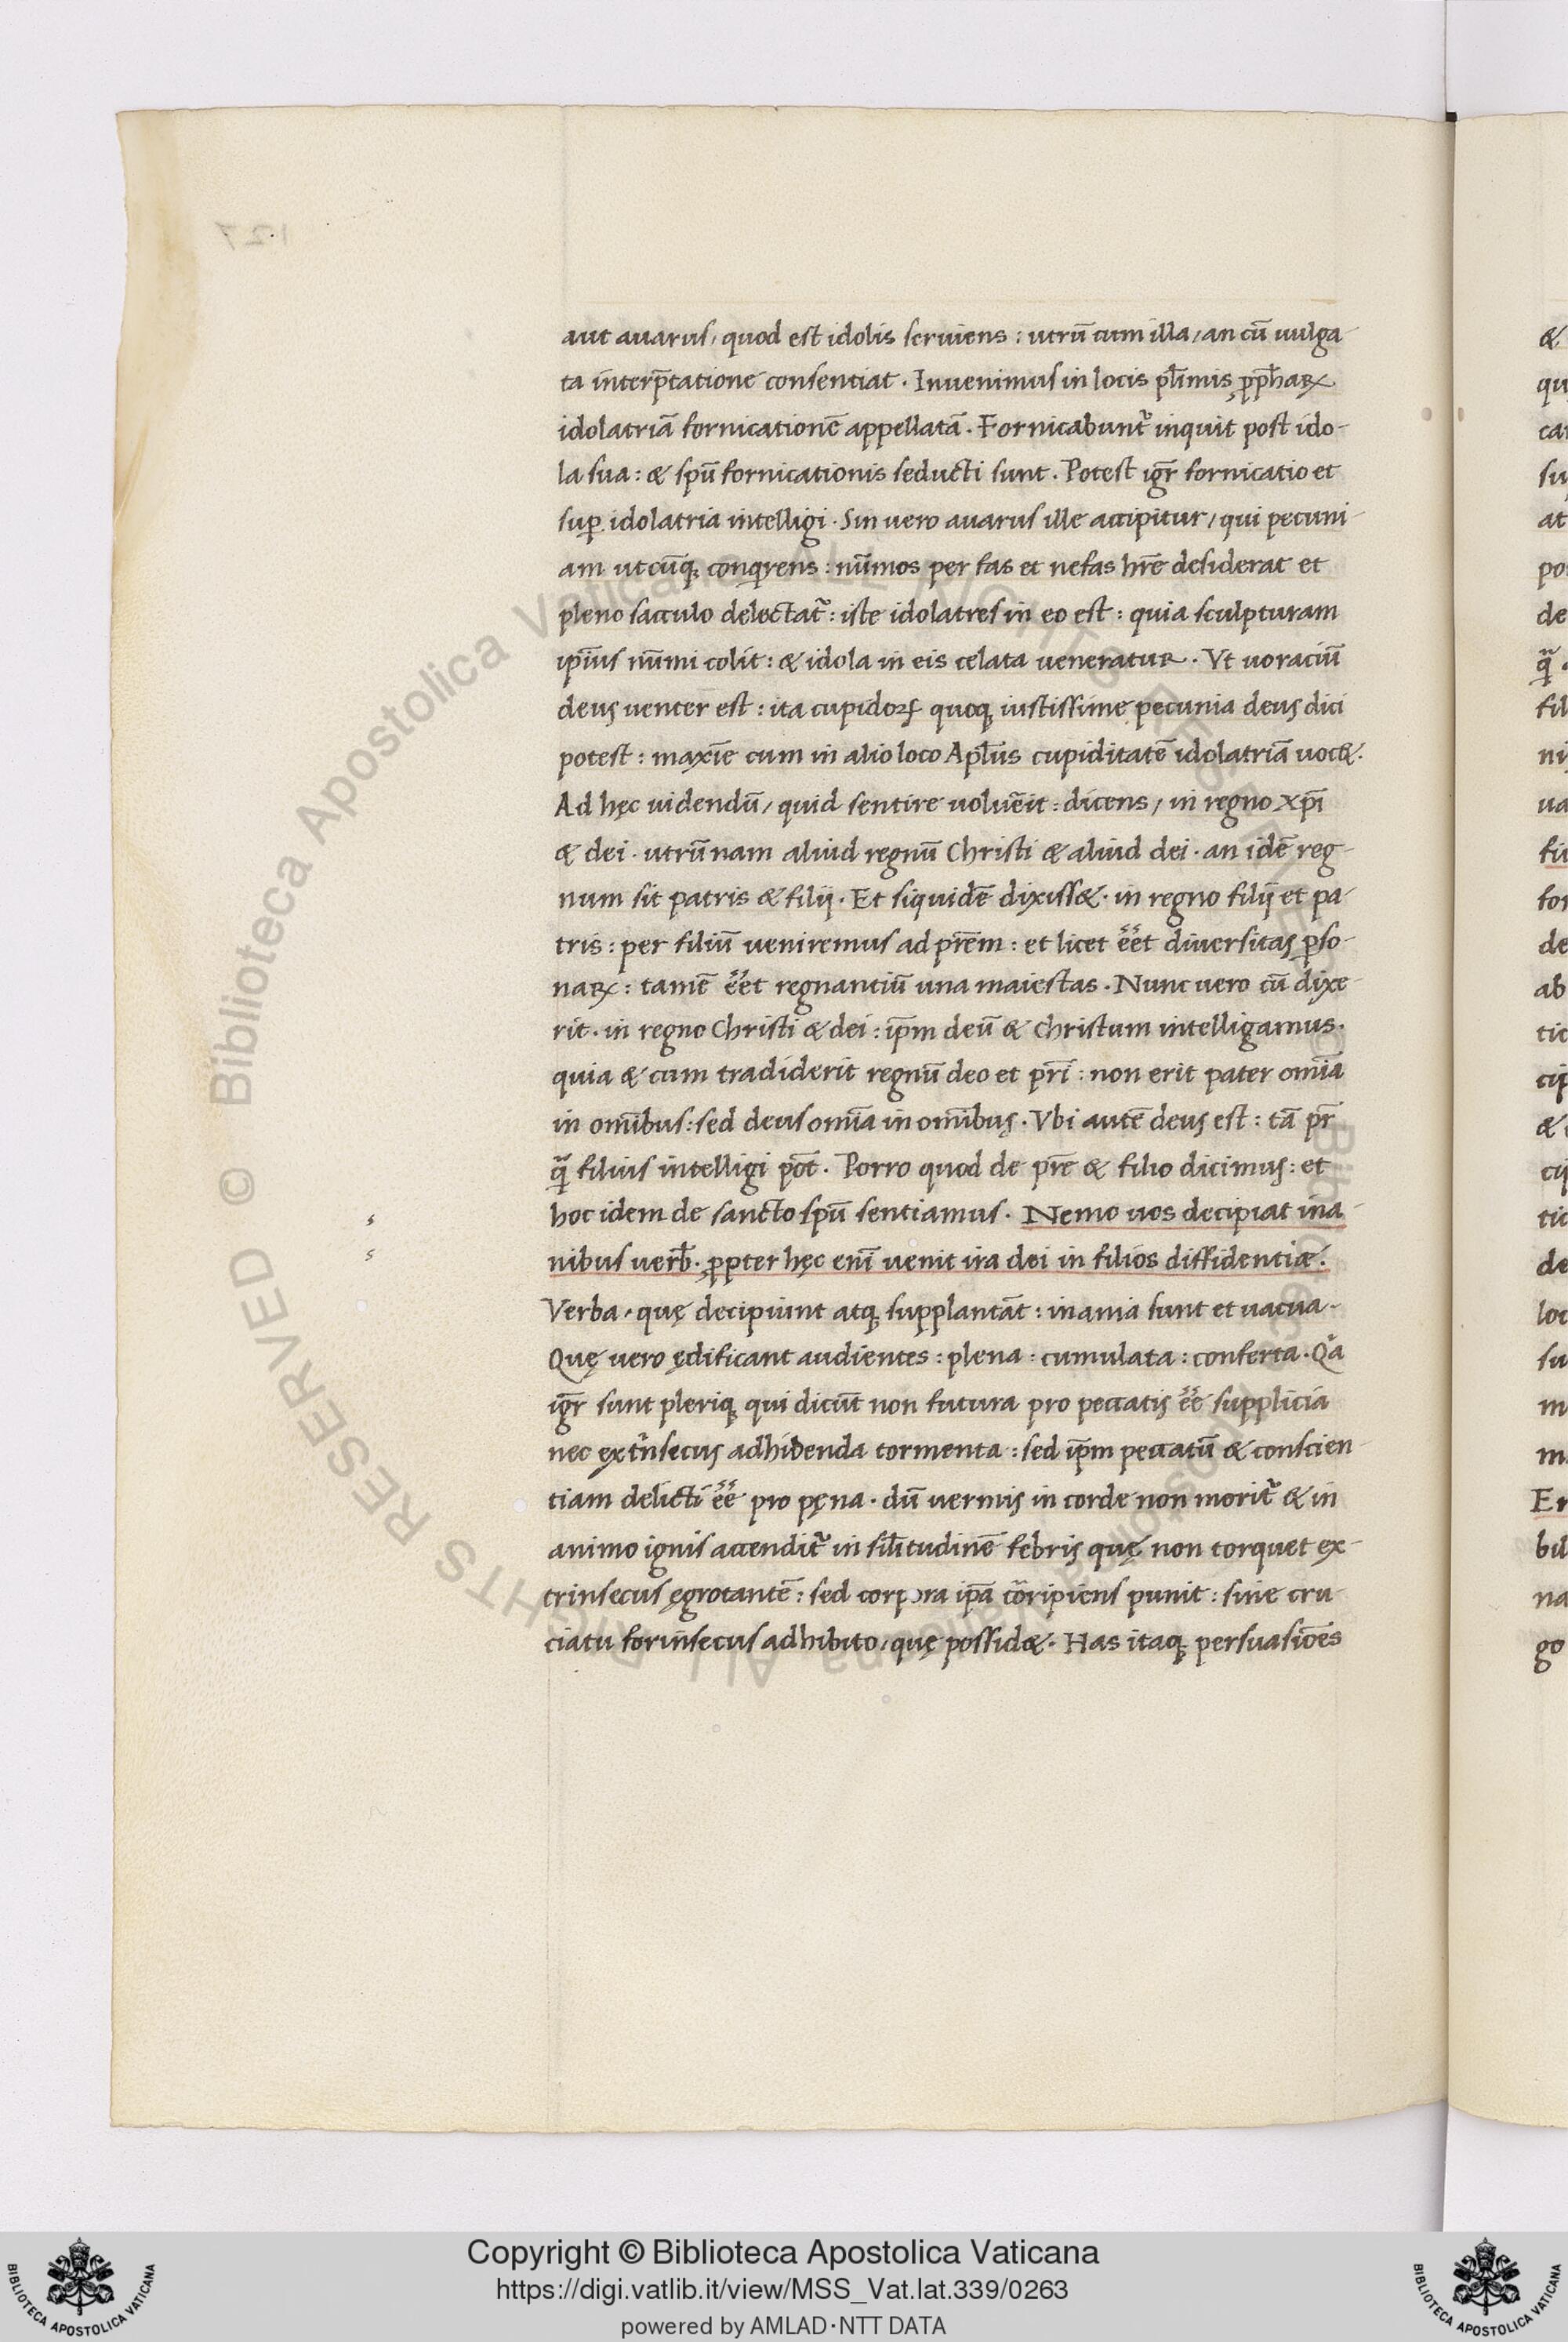 aut auarus, quod est idolis seruiens : utrū cum illa, an cū uulga
ta interp̄tatione consentiat . Inuenimus in locis pl̄imis ꝓph̄aꝝ
idolatriā fornicationē appellatā . Fornicabunt᷑ inquit post ido-
la sua : & sp̄ū fornicationis seducti sunt . Potest igr̄ fornicatio et
suꝑ idolatria intelligi . Sin uero auarus ille accipitur, qui pecuni
am utcūq; conq̇rens : nūmos per fas et nefas hr̄e desiderat et
pleno sacculo delectat᷑ : iste idolatres in eo est : quia sculpturam
ip̄ius nūmi colit : & idola in eis celata ueneratur . Vt uoraciū
deus uenter est : ita cupidoꝝ quoq; iustissime pecunia deus dici
potest : maxīe cum in alio loco Apl̄us cupiditatē idolatriā uoc&.
Ad hęc uidendū, quid sentire uoluēit : dicens, in regno xp̄ī
& dei . utrū nam aliud regnū Christi & aliud dei . an idē reg-
num sit patris & filij . Et siquidē dixiss& . in regno filij et pa
tris : per filiū ueniremus ad pr̄em : et licet ēēt diuersitas ꝑso-
naꝝ : tamē ēēt regnantiū una maiestas . Nunc uero cū dixe
rit . in regno Christi & dei : ip̄m deū & christum intelligamus.
quia & cum tradiderit regnū deo et pr̄ī : non erit pater om̄ia
in om̄ibus : sed deus om̄ia in om̄ibus . Vbi autē deus est : tā pr̄
q̄ filius intelligi pōt . Porro quod de pr̄e & filio dicimus : et
hoc idem de sancto sp̄ū sentiamus . Nemo uos decipiat ina
nibus uerb̄ . ꝓpter hęc enī uenit ira dei in filios diffidentiæ .
Verba, quę decipiunt atq; supplantāt : inania sunt et uacua .
Quę uero ędificant audientes : plena : cumulata : conferta . Qa
igr̄ sunt pleriq; qui dicūt non futura pro peccatis ēē supplicia
nec ext̄nsecus adhibenda tormenta : sed ip̄m peccatū & conscien
tiam delicti ēē pro pęna . dū uermis in corde non morit᷑ & in
animo ignis accendit᷑ in sil̄itudinē febris quę non torquet ex-
trinsecus ęgrotantē : sed corpora ip̄a cōripiens punit : siue cru
ciatu forinsecus adhibito, quę possid& . Has itaq; persuasiōes
s
s
127
Copyright © Biblioteca Apostolica Vaticana
https://digi.vatlib.it/view/MSS_Vat.lat.339/0263
powered by AMLAD·NTT DATA
BIBLIOTECA APOSTOLICA VATICANA
BIBLIOTECA APOSTOLICA VATICANA
© Biblioteca Apostolica Vaticana ALL RIGHTS RESERVED